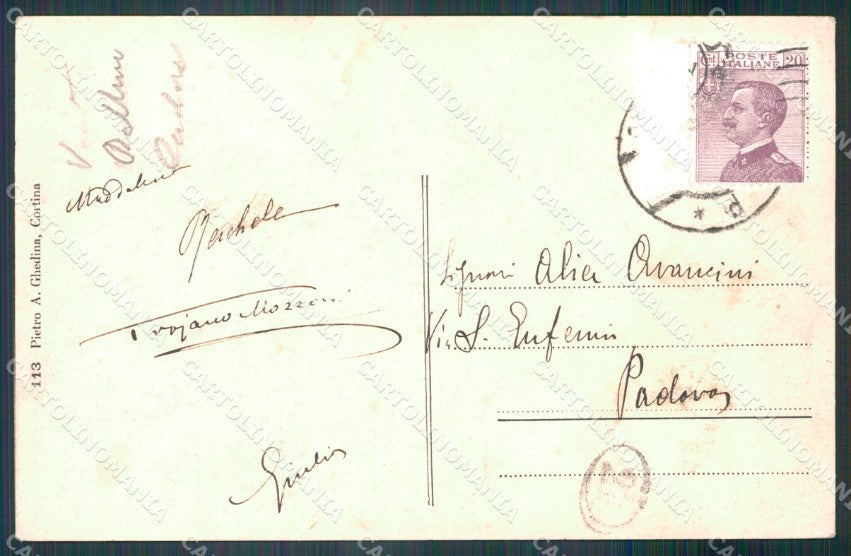 POSTE
ITALIANE
Cent 20
Maddalena
Trojano Mozzoni
Giulio
113 Pietro A. Ghedina, Cortina
Signori Alice Avancini
Via S. Eufemia
Padova
CARTOLINOMANIA